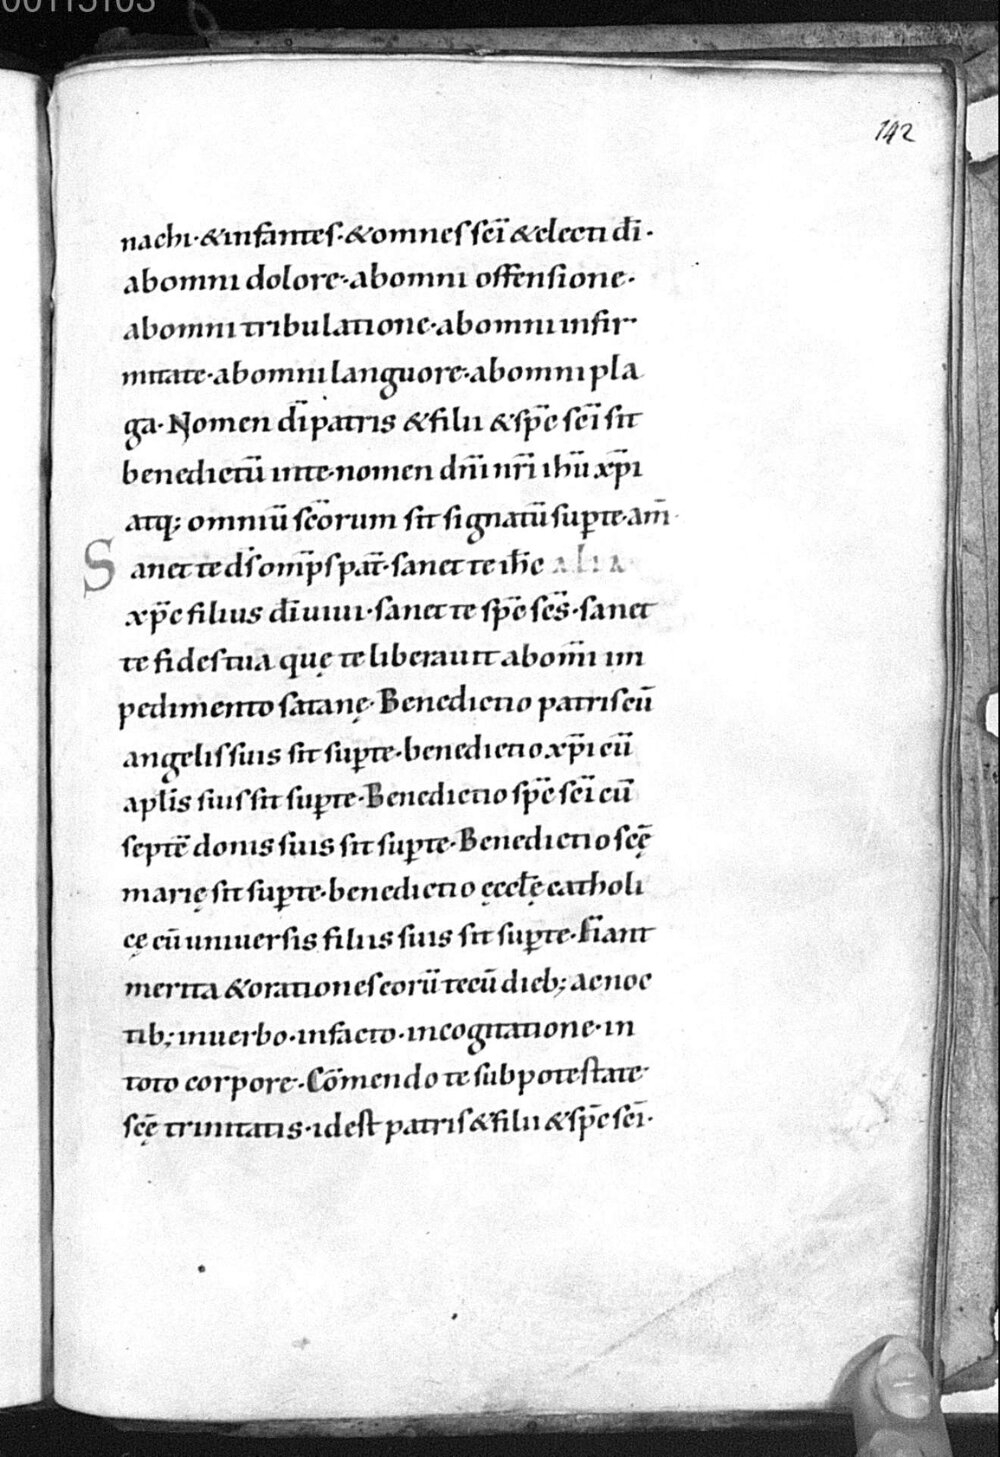 00115103
142
nachi·&infantes·&omnes sc̄i &electi dī·
abomni dolore·abomni offensione·
abomni tribulatione·abomni infir-
mitate·abomni languore·abomni pla
ga· Nomen dī patris &filii &sp̄e sc̄i sit
benedictū inte·nomen dn̄i nr̄i ihū xp̄i
atq; omniū sc̄orum sit signatū sup̱te·am̄·
Sanct te ds̄ omp̄s pat̄·sanct te ih̄c alia
xp̄c filius dī uiui·sanct te sp̄c sc̄s·sanct
te fides tua quę te liberauit abom̄i im
pedimento satanę· Benedictio patris cū
angelis suis sit sup̱te·benedictio xp̄i cū
apl̄is suis sit sup̱te·Benedictio sp̄c sc̄i cū
septē donis suis sit sup̱te·Benedictio sc̄ę
marię sit sup̱te·benedictio ęccl̄ę catholi
cę cū uniuersis filiis suis sit sup̱te·Fiant
merita &orationes eorū tecū dieb; acnoc
tib; inuerbo·infacto·incogitatione·in
toto corpore·Cōmendo te subpotestate
sc̄ę trinitatis·idest patris &filii &sp̄c sc̄i·